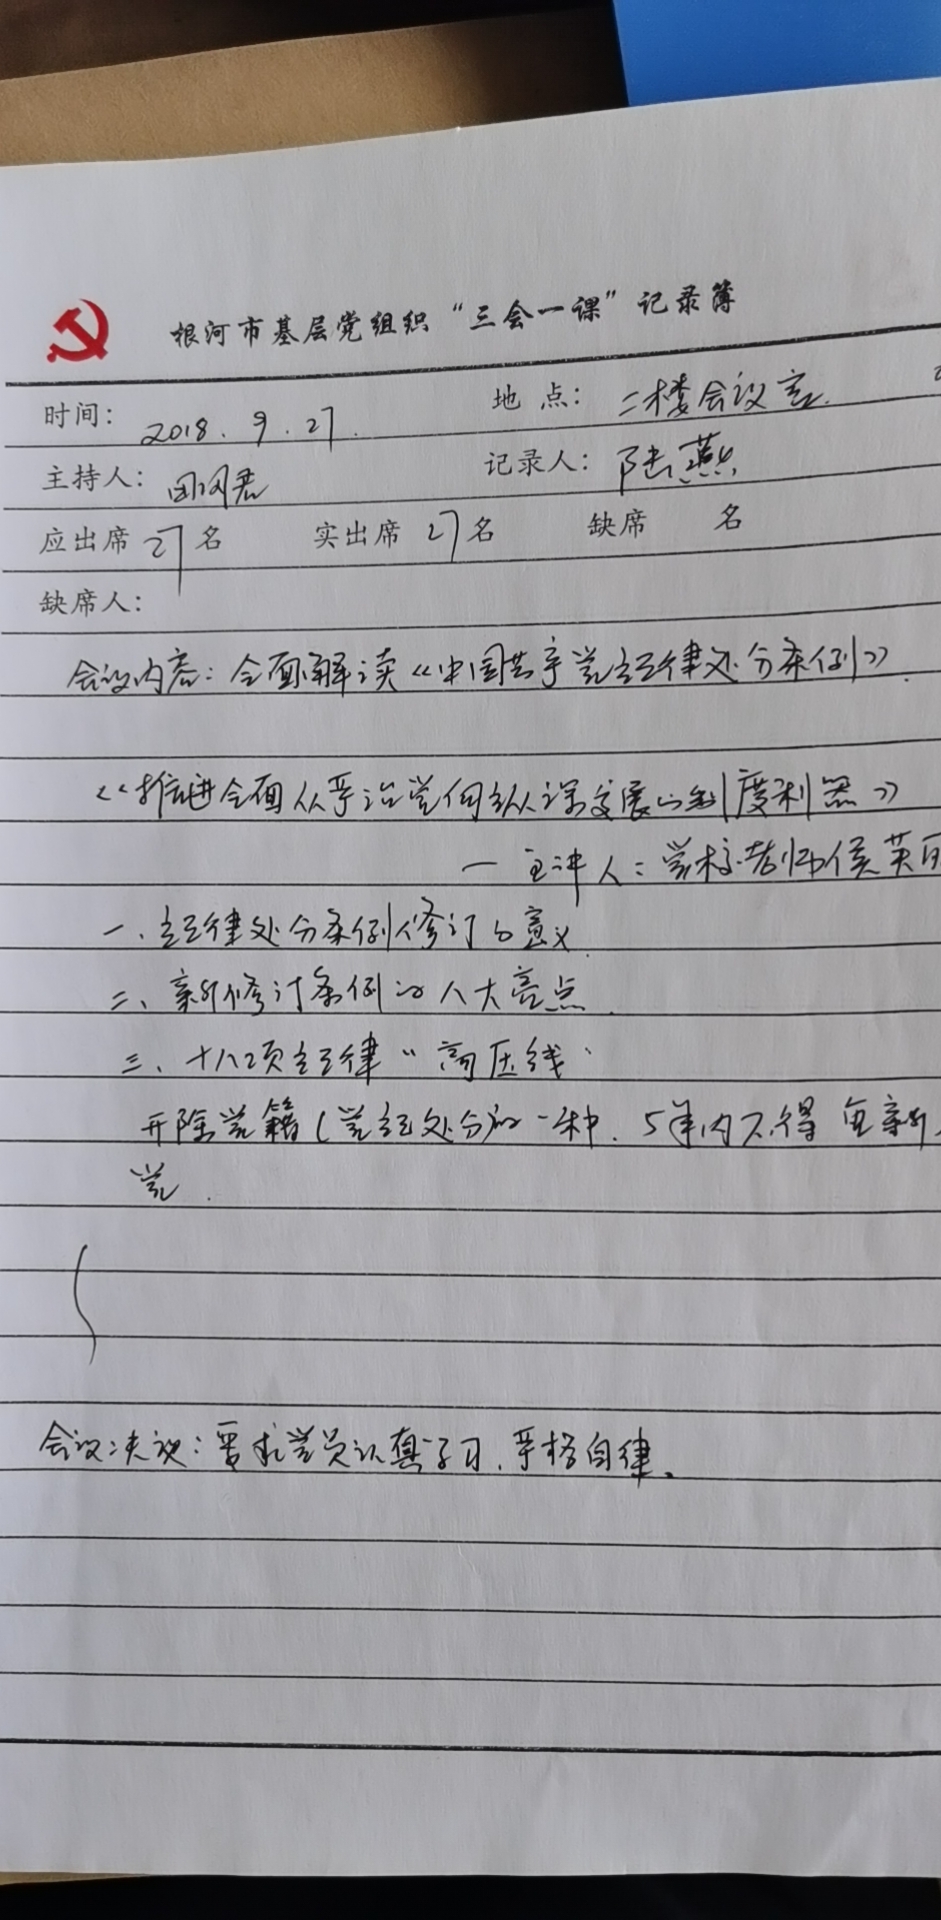 根河市基层党组织“三会一课”记录簿
时间: 2018.9.27. 地点: 二楼会议室.
主持人: 田 记录人: 陆燕
应出席 27 名 实出席 27 名 缺席 名
缺席人:
会议内容: 全面解读《中国共产党纪律处分条例》.
《推进全面从严治党向纵深发展的制度利器》
— 主讲人: 党校老师侯英
一、纪律处分条例修订的意义.
二、新修订条例的八大亮点.
三、十八项纪律“高压线”
开除党籍(党纪处分的一种. 5年内不得重新
党.
会议决议: 要求党员认真学习, 严格自律.